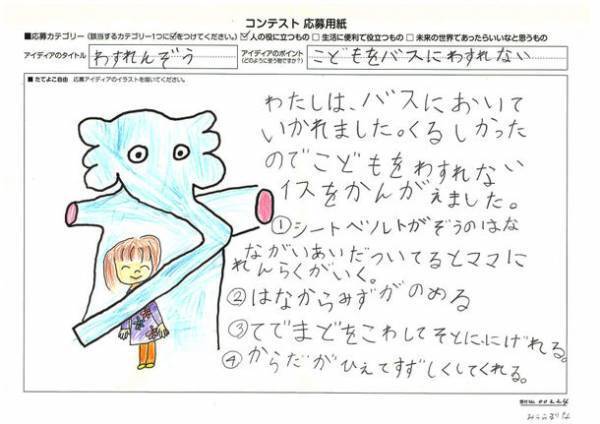 コンテスト 応募用紙
■応募カテゴリー(該当するカテゴリー1つに☑をつけてください。) ☑人の役に立つもの □生活に便利で役立つもの □未来の世界であったらいいなと思うもの
アイディアのタイトル わすれんぞう アイディアのポイント(どのように使う物ですか?) こどもをバスにわすれない
■たてよこ自由 応募アイディアのイラストを描いてください。
わたしは、バスにおいて
いかれました。くるしかった
のでこどもをわすれない
イスをかんがえました。
①シートベルトがぞうのはな
ながいあいだついてるとママに
れんらくがいく。
②はなからみずがのめる
③てでまどをこわしてそとににげれる。
④からだがひえてすずしくしてくれる。